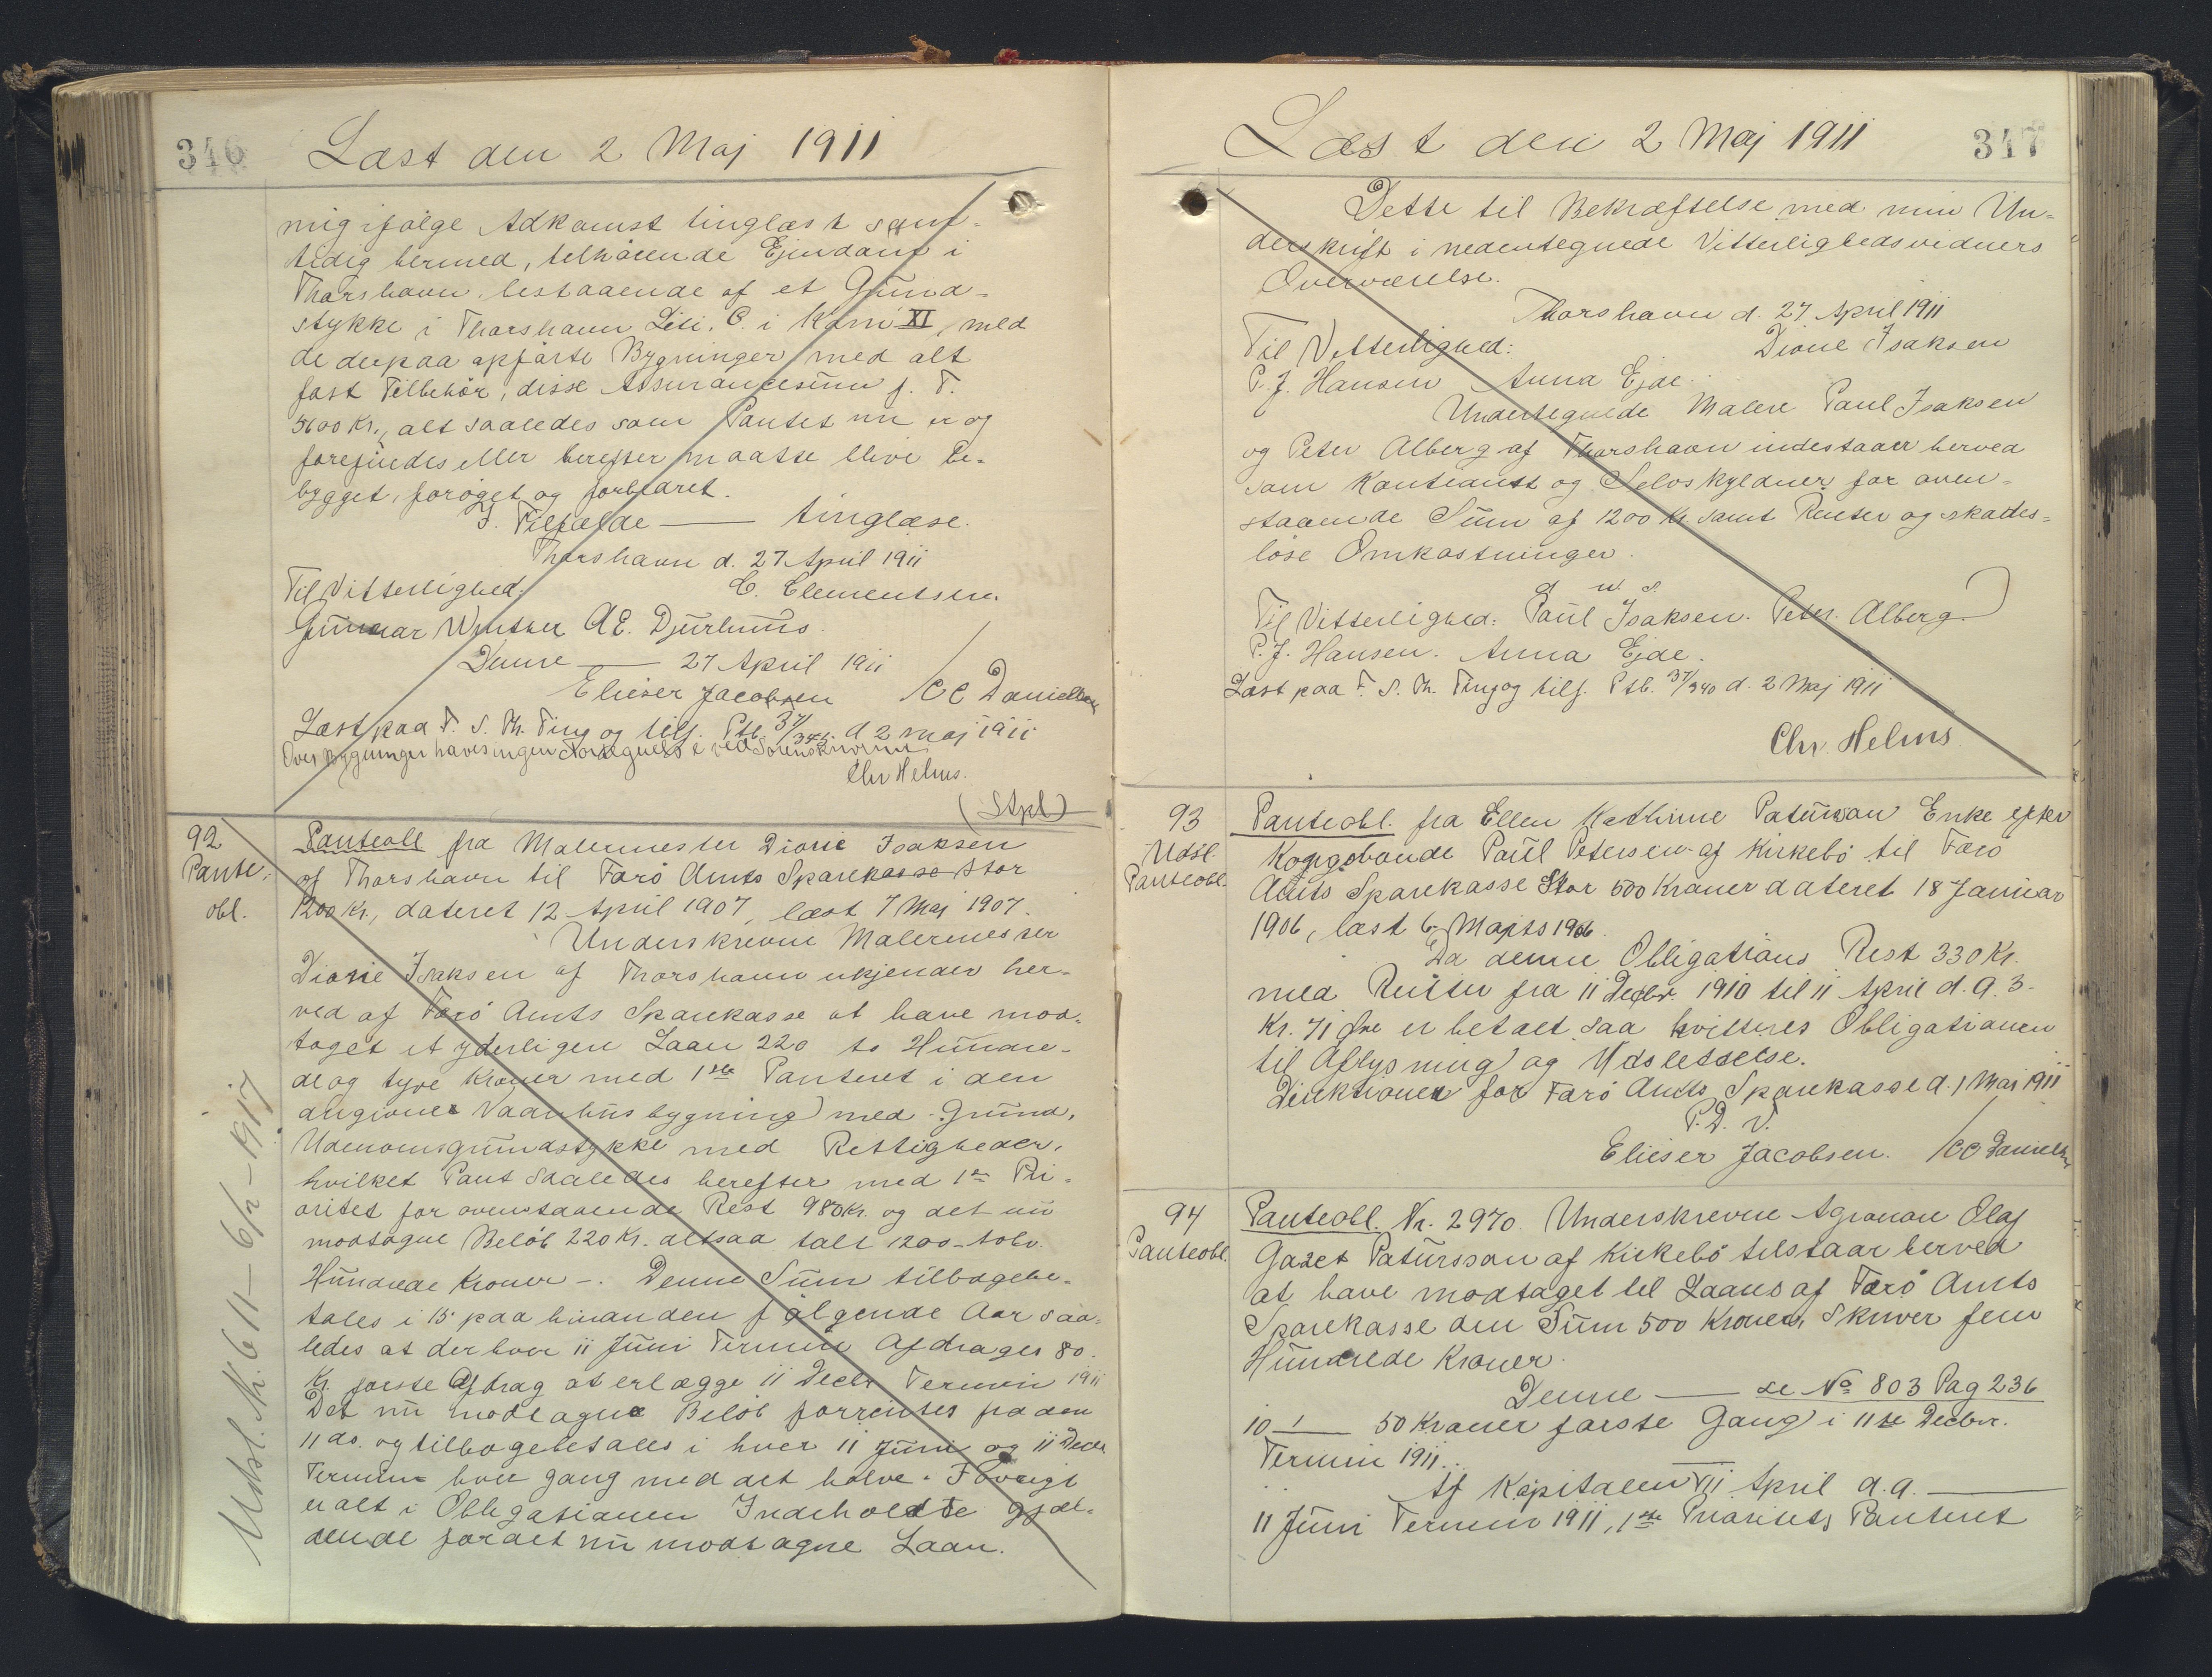 346
Læst den 2 Maj 1911
mig ifølge Adkomst tinglæst sam-
tidig hermed, tilhørende Ejendom i
Thorshavn, bestaaende af et Grund-
stykke i Thorshavn Litr. C. i Kom XI, med
de derpaa opførte Bygninger med alt
fast Tilbehør, disse Assurancesum p. T.
5600 Kr., alt saaledes som Pantet nu er og
forefindes eller herefter maatte blive be-
bygget, forøget og forbedret.
I Tilfælde — tinglæse.
Thorshavn d. 27 April 1911
Til Vitterlighed: C. Clementsen.
Gunnar Winther A E. Djurhuus.
Denne — 27 April 1911
Elieser Jacobsen / CC Danielsen
Læst paa F. S. Th. Ting og tilf. Ptb. 37/345. d 2 Maj 1911
Over Bygninger haves ingen Fortegnelse ved Sorenskriveriet
Chr Helms.
(Stpl)
92
Pante-
obl.
Panteobl fra Malermester Dione Isaksen
af Thorshavn til Færø Amts Sparekasse stor
1200 Kr., dateret 12 April 1907, læst 7 Maj 1907.
Underskrevne Malermester
Dione Isaksen af Thorshavn erkjender her-
ved af Færø Amts Sparekasse at have mod-
taget et yderligere Laan 220 to Hundre-
de og tyve Kroner med 1ste Panteret i den
angivne Vaanhusbygning med Grund,
Udenomsgrundstykke med Rettigheder,
hvilket Pant saaledes herefter med 1ste Pri-
oritet for ovenstaaende Rest 980 Kr. og det nu
modtagne Beløb 220 Kr. altsaa talt 1200 - tolv
Hundrede Kroner -. Denne Sum tilbagebe-
tales i 15 paa hinanden følgende Aar saa-
ledes at der hver 11 Juni Termin Afdrages 80
Kr. første Afdrag at erlægge 11 Decbr Termin 1911
Det nu modtagne Beløb forrentes fra den
11 ds. og tilbagebetales i hver 11 Juni og 11 Decbr
Termin hver Gang med det halve. Forøvrigt
er alt i Obligationen Indeholdte gjæl-
dende for det nu modtagne Laan.
Udsl. Nr. 611 - 6/2 - 1917
347
Læst den 2 Maj 1911
Dette til Bekræftelse med min Un-
derskrift i nedentegnede Vitterlighedsvidners
Overværelse.
Thorshavn d. 27 April 1911
Til Vitterlighed: Dione Isaksen
P. J. Hansen Anna Ejde.
Undertegnede Malere Paul Isaksen
og Peter Alberg af Thorshavn indestaaer herved
som Kautionist og Selvskyldner for oven-
staaende Sum af 1200 Kr. samt Renter og skades-
løse Omkostninger.
d. u. s.
Til Vitterlighed: Paul Isaksen. Peter Alberg
P. J. Hansen. Anna Ejde.
Læst paa F. S. Th. Ting og tilf. Ptb. 37/340 d. 2 Maj 1911
Chr. Helms.
93
Udsl.
Panteobl.
Panteobl. fra Ellen Kathrine Patursson Enke efter
Kongsbonde Paul Petersen af Kirkebø til Færø
Amts Sparekasse Stor 500 Kroner dateret 18 Januar
1906, læst 6 Marts 1906.
Da denne Obligations Rest 330 Kr.
med Renter fra 11 Decbr. 1910 til 11 April d. A. 3-
Kr. 71 Øre er betalt saa kvitteres Obligationen
til Aflysning og Udslettelse.
Direktionen for Færø Amts Sparekasse d. 1 Maj 1911
P. D. V.
Elieser Jacobsen. / CC Danielsen
94
Panteobl.
Panteobl. Nr. 2970. Underskrevne Agronom Olaf
Gazet Patursson af Kirkebø tilstaar herved
at have modtaget til Laans af Færø Amts
Sparekasse den Sum 500 Kroner, skriver fem
Hundrede Kroner.
Denne — se No 803 Pag 236
10 — 50 Kroner første Gang i 11te Decbr.
Termin 1911.
Af Kapitalen 11 April d. A. —
11 Juni Termin 1911, 1ste Prioritets Panteret